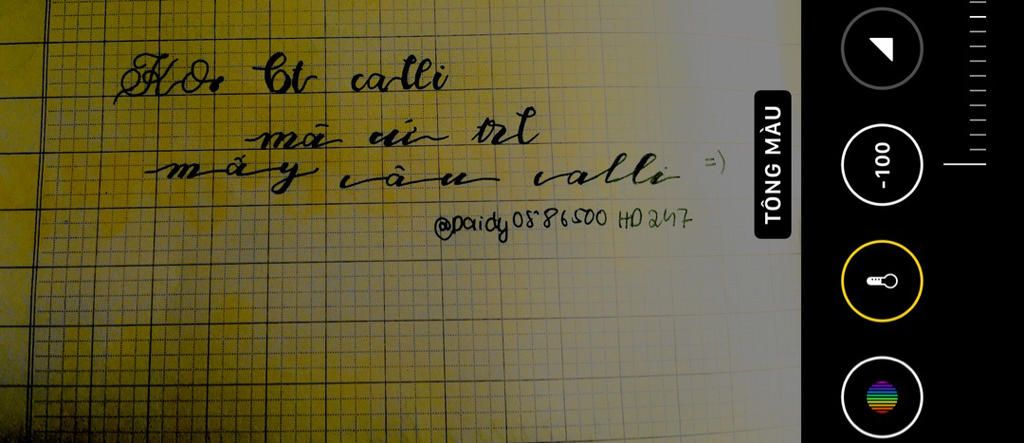 Ko bt calli
mà cứ trl
mấy câu calli =)
@paidy0586500 HD247
TÔNG MÀU
-100